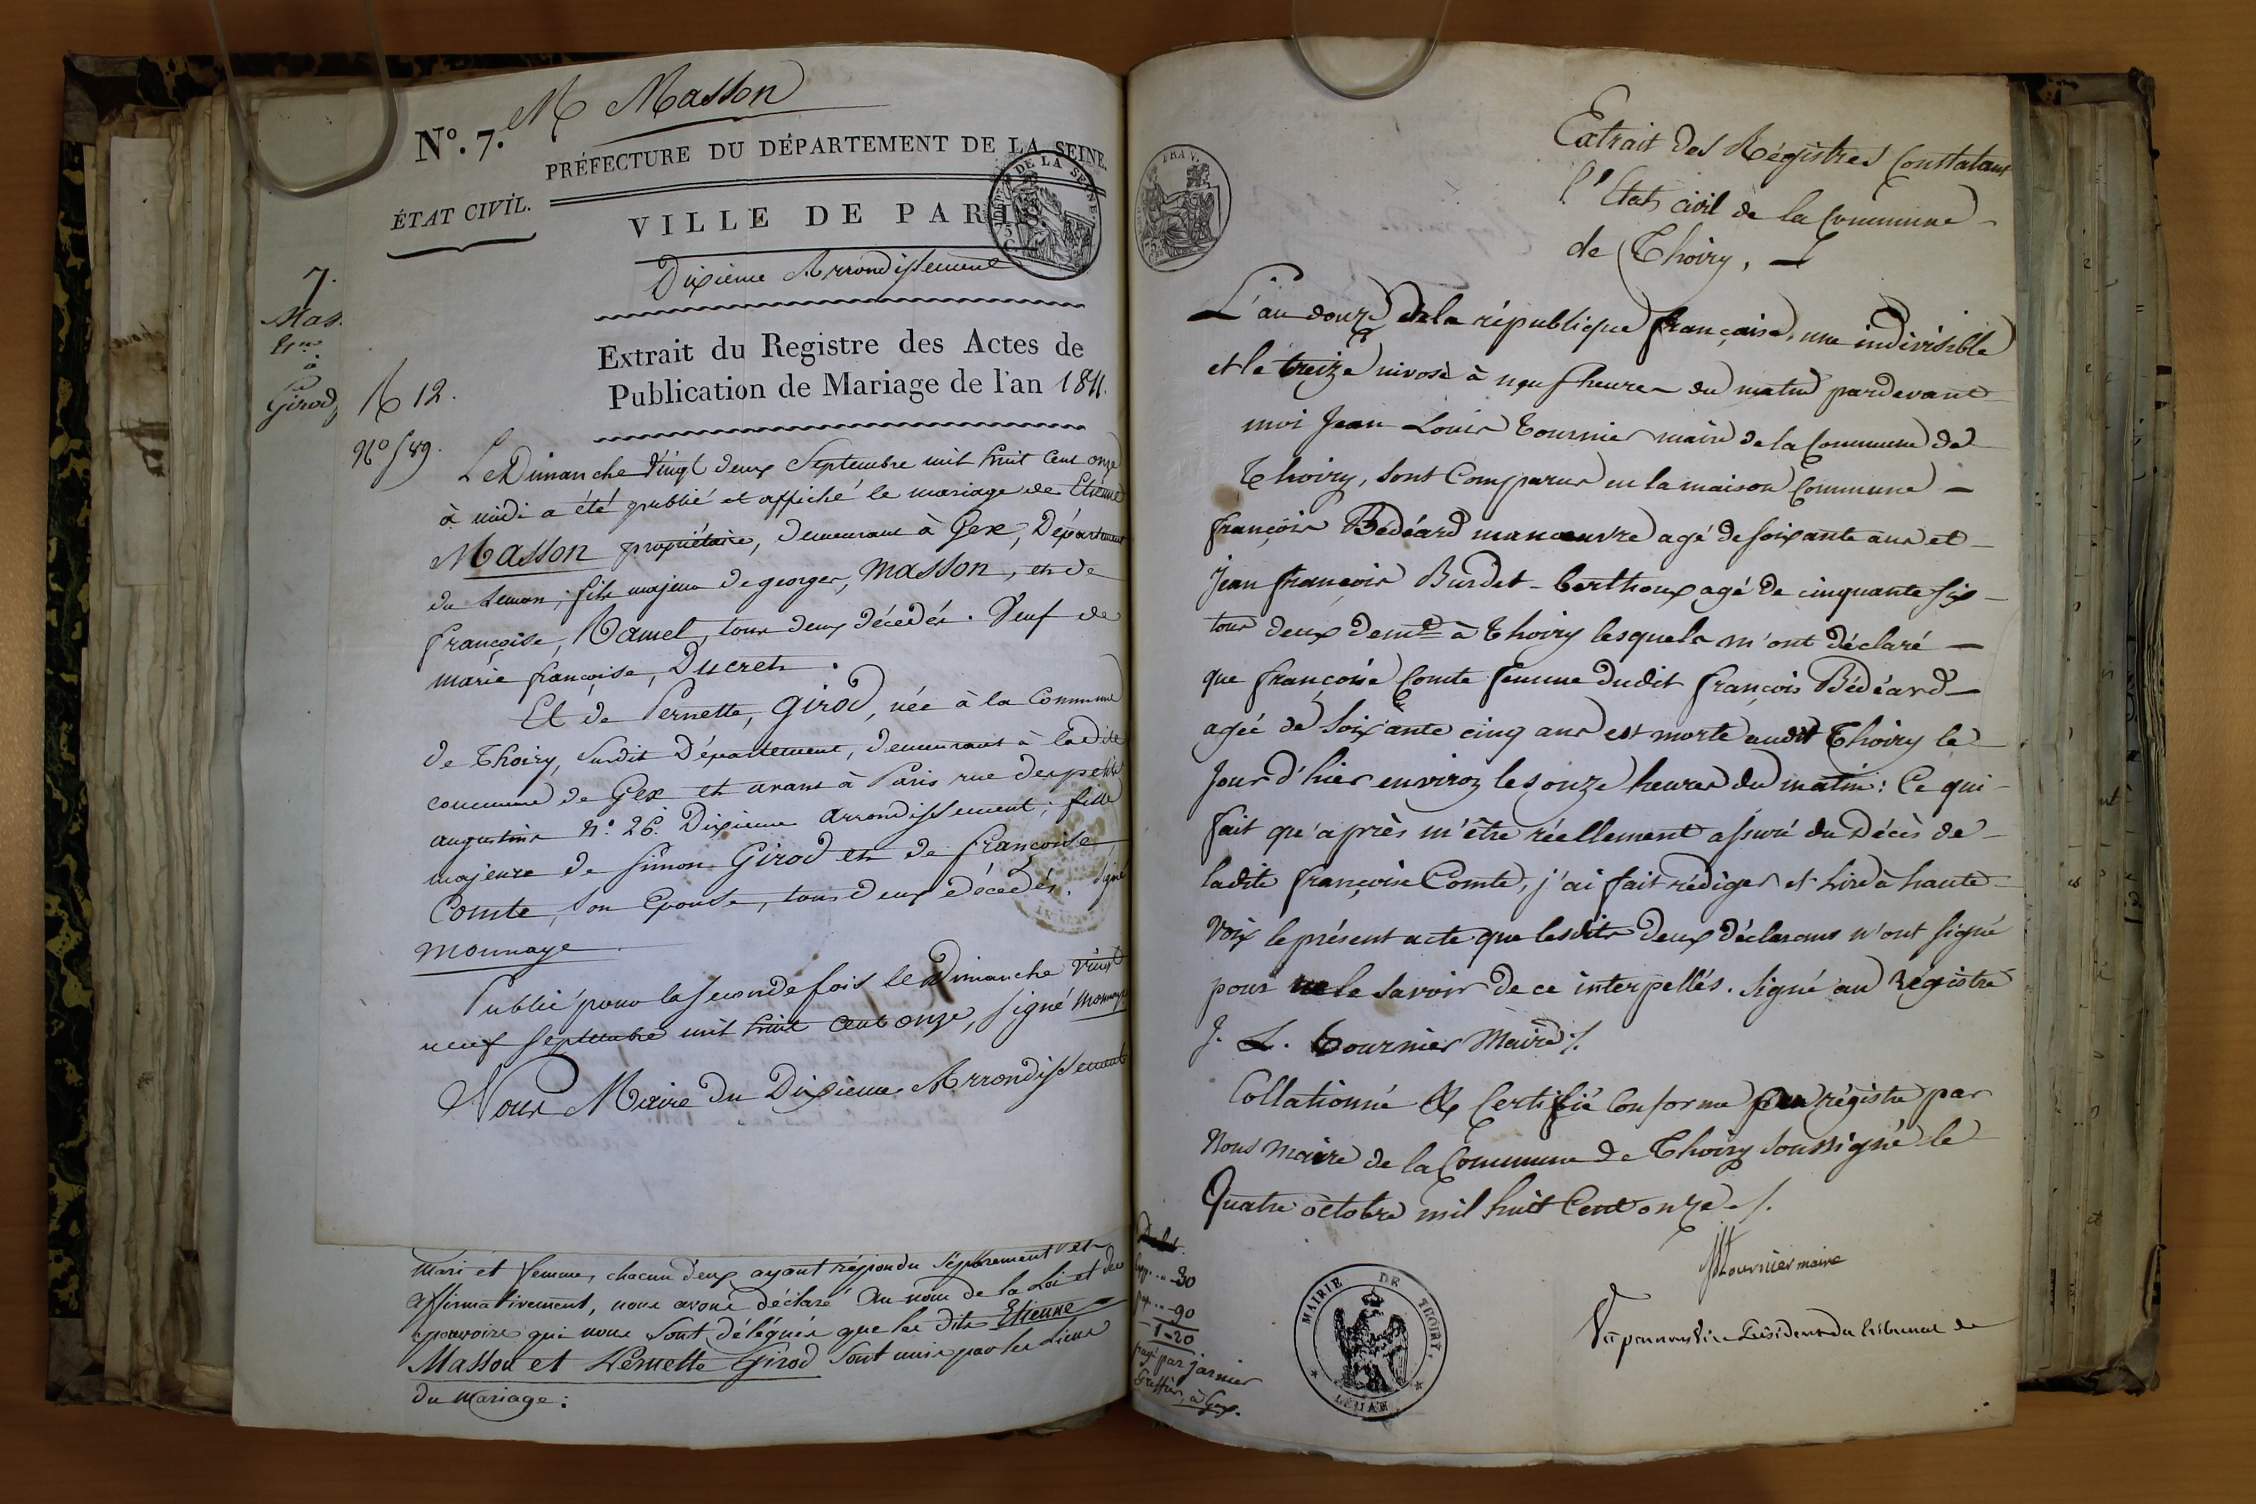 M Masson
N.º 7.
PRÉFECTURE DU DÉPARTEMENT DE LA SEINE.
ÉTAT CIVIL.
VILLE DE PARIS
Dixieme Arrondissement
Extrait du Registre des Actes de
Publication de Mariage de l'an 1811.
7.
Mas.
à
Girod
R 12.
Nº 589.
Le Dimanche Vingt deux Septembre mil huit cent onze
à midi a été publié et affiché le mariage de Etienne
Masson propriétaire, demeurant à Gex, Département
du Leman, fils majeur de georges, Masson, et de
françoise, Ramel, tous deux décédés. Veuf de
marie françoise, Ducret.
Et de Pernette, Girod, née à la Commune
de Thoiry, susdit Département, demeurant à ladite
commune de Gex et avant à Paris rue des petits
augustins Nº 26. Dixieme arrondissement; fille
majeure de Simon Girod et de françoise
Comte, son Epouse, tous deux décédés. Signé
Monnaye
Publié pour la seconde fois le Dimanche vingt
neuf septembre mil huit cent onze, signé Monnaye
Nous Maire du Dixieme Arrondissement
mari et femme, chacun d'eux ayant répondu séparement et
affirmativement, nous avons déclaré au nom de la Loi et des
pouvoirs qui nous sont délégués que les dits Etienne
Masson et Pernette Girod sont unis par les liens
du mariage:
Extrait des Régistres Constatans
l'Etat civil de la Commune
de Thoiry.
L'an douze de la république française, une indivisible
et le treize nivose à neuf heures du matin pardevant
moi Jean Louis Tournier maire de la Commune de
Thoiry, sont Comparus en la maison Commune
françois Bédéard manoeuvre agé de soixante ans et
Jean françois Burdet-berthoux agé de cinquante six
tous deux demts à Thoiry lesquels m'ont déclaré
que françoise Comte femme dudit françois Bédéard
agée de soixante cinq ans est morte audit Thoiry le
Jour d'hier environ les onze heures du matin: Ce qui
fait qu'après m'être réellement assuré du Décès de
ladite françoise Comte, j'ai fait rédiger et Lire à haute
Voix le présent acte que lesdits deux déclarans n'ont signé
pour ne le savoir de ce interpellés. Signé au Régistre
J. L. Tournier Maire /.
Collationné & Certifié Conforme au régistre par
Nous Maire de la Commune de Thoiry soussigné le
Quatre octobre mil huit Cent onze /.
Tournier maire
Vu par nous Vice Président du tribunal de
30
90
1-20
payé par janier
Greffier, à Gex.
MAIRIE DE THOIRY,
LÉMAN